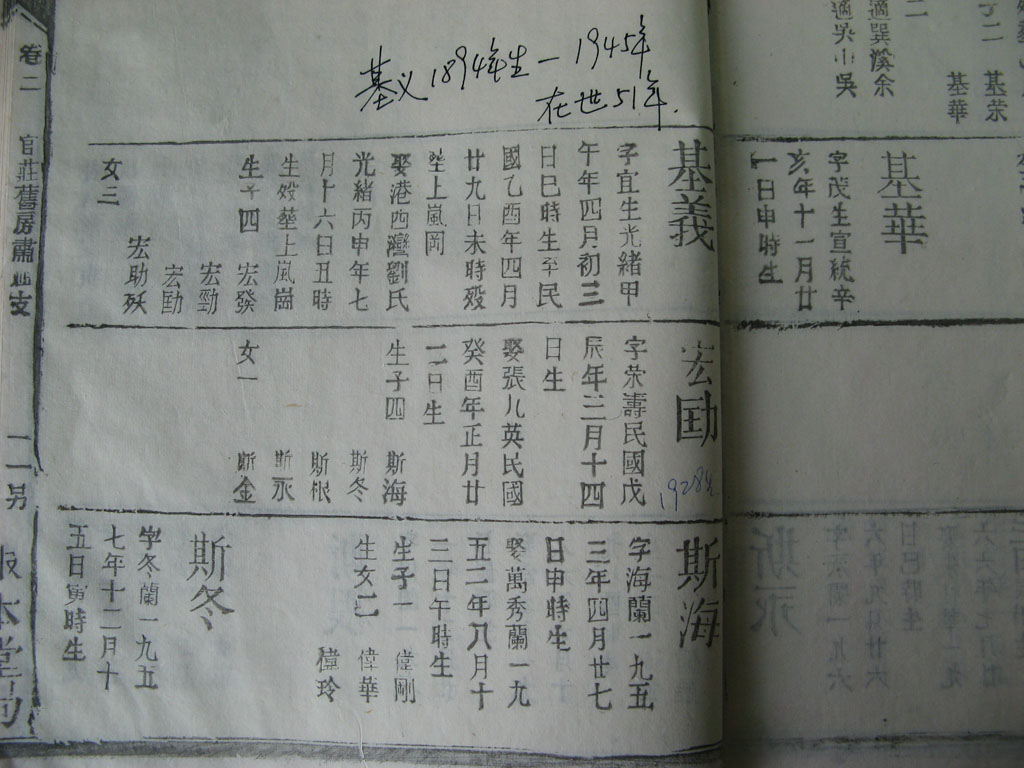 基义1894年生一1945年
在世51年.
二
適巽溪余
適吳小吳
子二 基荣
基華
基華
字茂生宣統辛
亥年十一月廿
一日申時生
基義
字宜生光緒甲
午年四月初三
日巳時生至民
國乙酉年四月
廿九日未時殁
塟上嵐岡
娶港西灣劉氏
光緒丙申年七
月十六日丑時
生殁塟上嵐崗
生子四 宏發
宏勁
宏勛
宏助殀
女三
宏勛
1928年
字荣壽民國戊
辰年三月十四
日生
娶張九英民國
癸酉年正月廿
二日生
生子四 斯海
斯冬
斯根
斯永
女一 斯金
斯海
字海蘭一九五
三年四月廿七
日申時生
娶萬秀蘭一九
五二年八月十
三日午時生
生子一 偉剛
生女二 偉華
偉玲
斯冬
字冬蘭一九五
七年十二月十
五日寅時生
卷二
官莊舊房肅 支
本堂